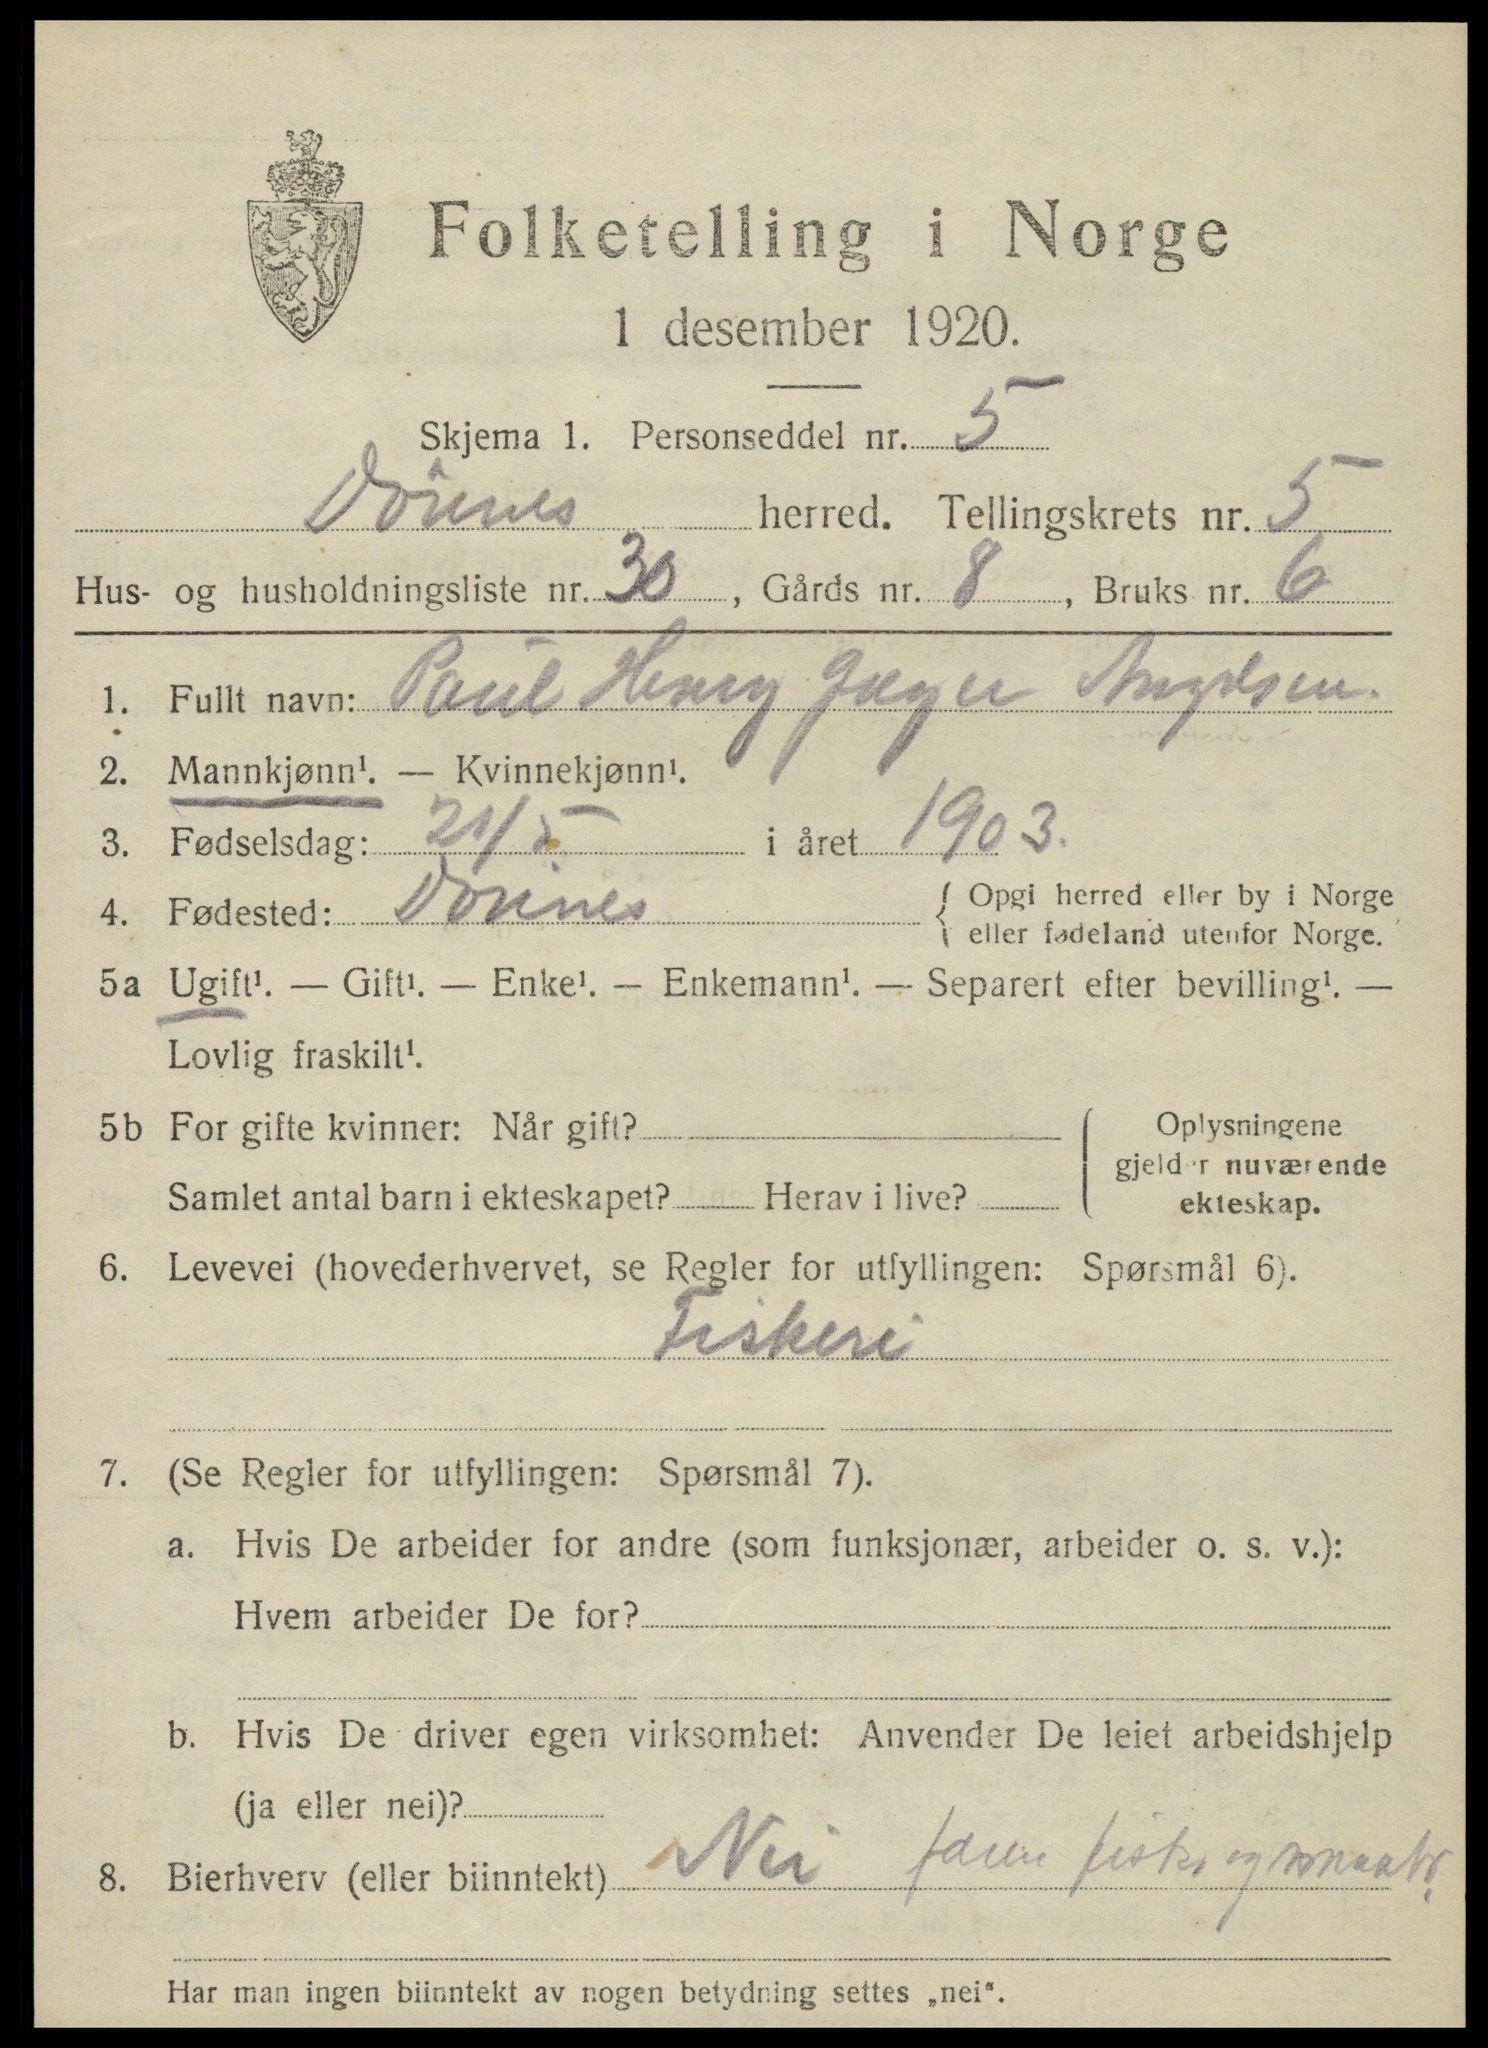 Folketelling i Norge
1 desember 1920.
Skjema 1. Personseddel nr. 5
Dönnes herred. Tellingskrets nr. 5
Hus- og husholdningsliste nr. 30, Gårds nr. 8, Bruks nr. 6
1. Fullt navn: Paul Henry Jæger
2. Mannkjønn¹. — Kvinnekjønn¹.
3. Fødselsdag: 21/5 i året 1903.
4. Fødested: Dönnes { Opgi herred eller by i Norge
eller fødeland utenfor Norge.
5a Ugift¹. — Gift¹. — Enke¹. — Enkemann¹. — Separert efter bevilling¹. —
Lovlig fraskilt¹.
5b For gifte kvinner: Når gift? { Oplysningene
gjelder nuværende
Samlet antal barn i ekteskapet? Herav i live? ekteskap.
6. Levevei (hovederhvervet, se Regler for utfyllingen: Spørsmål 6).
Fiskeri
7. (Se Regler for utfyllingen: Spørsmål 7).
a. Hvis De arbeider for andre (som funksjonær, arbeider o. s. v.):
Hvem arbeider De for?
b. Hvis De driver egen virksomhet: Anvender De leiet arbeidshjelp
(ja eller nei)?
8. Bierhverv (eller biinntekt) Nei faren fisker og
Har man ingen biinntekt av nogen betydning settes „nei“.